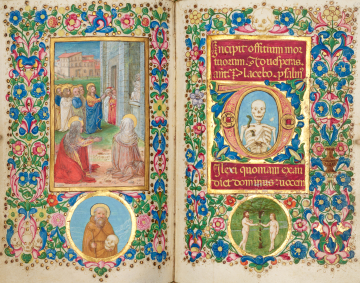 Incipit offitium mor
tuorum Ad uesperas.
ant. Placebo. psalm
D
Ilexi quoniam exau
diet dominus uocem